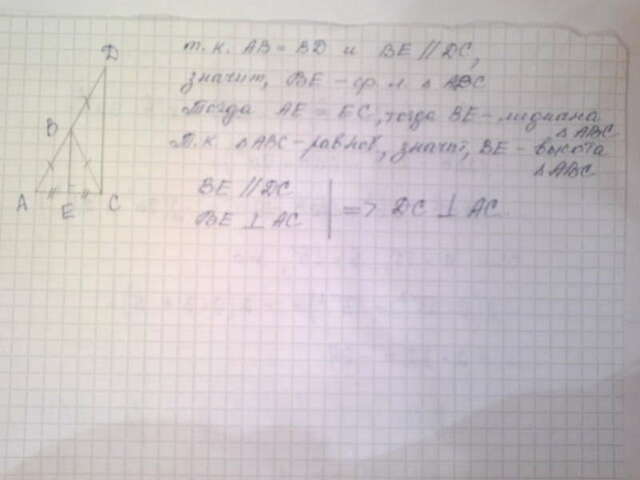 D
B
A E C
т.к. AB = BD и BE // DC,
значит, BE – ср. л. △ ADC
Тогда AE = EC, тогда BE – медиана
△ ABC
т.к. △ABC – равноб, значит, BE – высота
△ABC
BE // DC
BE ⊥ AC
=> DC ⊥ AC